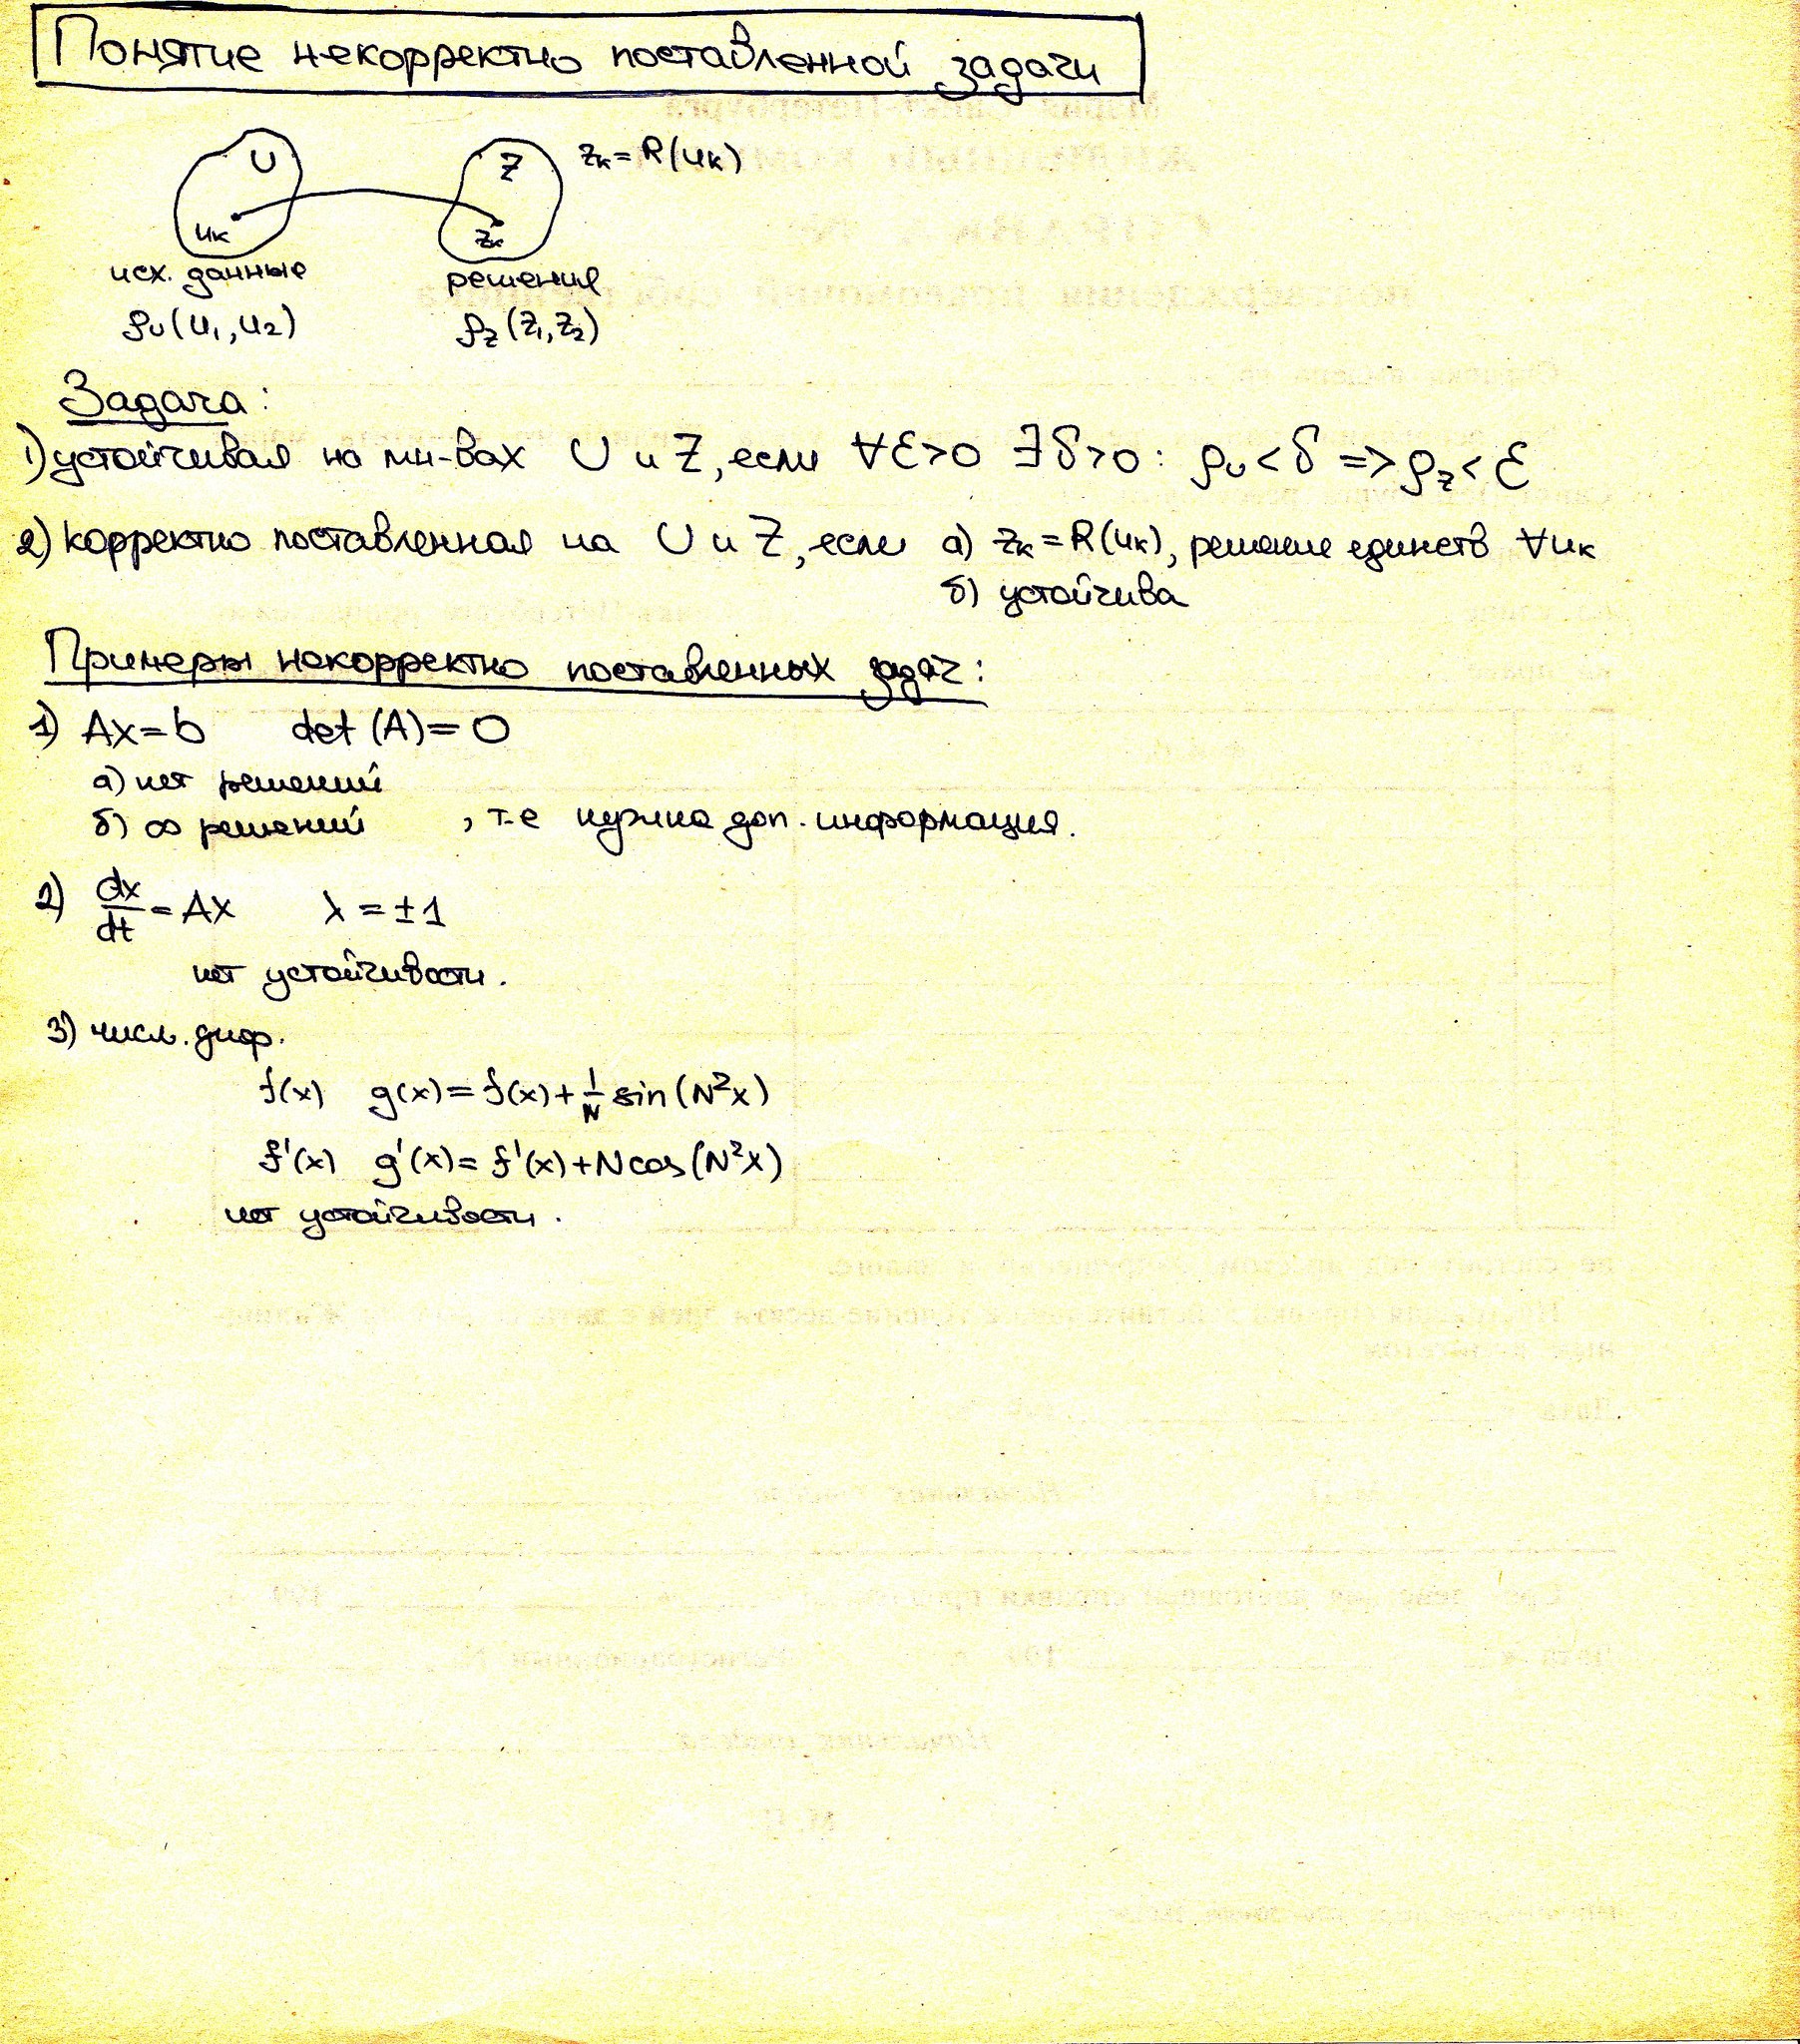 Понятие некорректно поставленной задачи
U Z zк = R(uк)
uк zк
исх. данные решения
ρu(u₁, u₂) ρz(z₁, z₂)
Задача:
1) устойчивая на мн-вах U и Z, если ∀ε>0 ∃δ>0: ρu < δ => ρz < ε
2) корректно поставленная на U и Z, если а) zк = R(uк), решение единств ∀uк
б) устойчива
Примеры некорректно поставленных задач:
1) Ax = b det(A) = 0
а) нет решений
б) ∞ решений , т-е нужна доп. информация.
2) dx/dt = Ax λ = ±1
нет устойчивости.
3) числ. диф.
f(x) g(x) = f(x) + 1/N sin(N²x)
f'(x) g'(x) = f'(x) + N cos(N²x)
нет устойчивости.